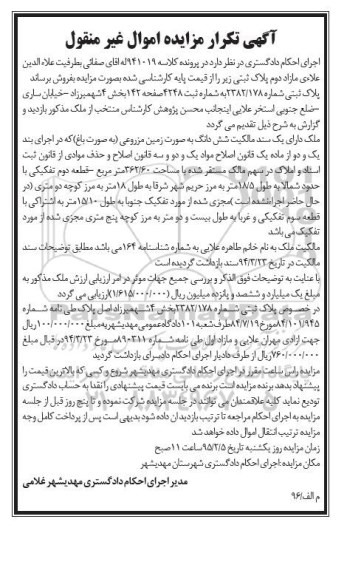 آگهی تکرار مزایده اموال غیر منقول
اجرای احکام دادگستری در نظر دارد در پرونده کلاسه ۹۴۱۰۱۹له اقای صفائی بطرفیت علاء الدین
علاءی مازاد دوم پلاک ثبتی زیر را از قیمت پایه کارشناسی شده بصورت مزایده بفروش برساند
پلاک ثبتی شماره ۲۳۸۲/۱۷۸به شماره ثبت ۴۲۴۸صفحه ۱۴۲بخش ۴شهمیرزاد –خیابان ساری
–ضلع جنوبی استخر علایی اینجانب محسن پژوهش کارشناس منتخب از ملک مذکور بازدید و
گزارش به شرح ذیل تقدیم می گردد
ملک دارای یک سند مالکیت شش دانگ به صورت زمین مزروعی (به صورت باغ)که در اجرای بند
یک و دو از ماده یک قانون اصلاح مواد یک و دو و سه قانون اصلاح و حذف موادی از قانون ثبت
اسناد و املاک در سهم مالک مستقر شده با مساحت ۳۶۲/۶۰متر مربع –قطعه دوم تفکیکی با
حدود شمالا به طول ۱۸/۵متر به مرز حریم شهر شرقا به طول ۱۸متر به مرز کوچه دو متری (در
حال حاضر اجرا نشده است )مجزی شده از مورد تفکیک جنوبا به طول ۱۵/۱۰متر به اشتراکی با
قطعه سوم تفکیکی و غربا به طول بیست و دو متر به مرز کوچه پنج متری مجزی شده از مورد
تفکیک می باشد
مالکیت ملک به نام خانم طاهره علایی به شماره شناسنامه ۱۶۴می باشد مطابق توضیحات سند
مالکیت در تاریخ ۹۴/۳/۲۳سند بازداشت گردیده است
با عنایت به توضیحات فوق الذکر و بررسی جمیع جهات موثر در امر ارزیابی ارزش ملک مذکور به
مبلغ یک میلیارد و ششصد و پانزده میلیون ریال (۱/۶۱۵/۰۰۰/۰۰۰)ارزیابی می گردد
در خصوص پلاک ثبتی شماره ۲۳۸۲/۱۷۸بخش ۴شهمیرزاد اصل پلاک طی نامه شماره
۸۴/۱۰۱/۹۴۵مورخ ۸۲/۷/۱۹طرف شعبه ۱۰۱دادگاه عمومی مهدیشهر به مبلغ ۱۰۰/۰۰۰/۰۰۰ریال
جهت ازادی مهران علایی و مازاد اول طی نامه شماره ۸۹۰۳۱۱مورخ ۹۴/۳/۲۳در قبال مبلغ
۷۶۰/۰۰۰/۰۰۰ریال از طرف دادیار اجرای احکام دادسرای بازداشت گردید
مزایده راس ساعت مقرر در اجرای احکام دادگستری مهدیشهر شروع و کسی که بالاترین قیمت را
پیشنهاد بدهد برنده مزایده است برنده می بایست قیمت پیشنهادی را نقدا به حساب دادگستری
تودیع نماید کلیه علاقمندان می توانند در جلسه مزایده شرکت نموده و تا پنج روز قبل از جلسه
مزایده به اجرای احکام مراجعه تا ترتیب بازدیدان داده شود بدیهی است پس از پرداخت کامل وجه
مزایده ترتیب انتقال اموال داده خواهد شد
زمان مزایده روز یکشنبه تاریخ ۹۵/۲/۵ساعت ۱۱صبح
مکان مزایده :اجرای احکام دادگستری شهرستان مهدیشهر
مدیر اجرای احکام دادگستری مهدیشهر غلامی
م الف/۹۶